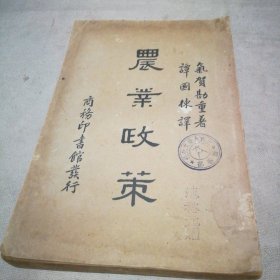 氣賀勘重著
譚國棟譯
農業政策
商務印書館發行